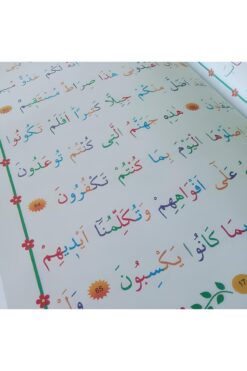 لَكُمْ عَدُوٌّ
هٰذَا صِرَاطٌ مُسْتَقِيمٌ
اَضَلَّ مِنْكُمْ جِبِلًّا كَثِيرًا اَفَلَمْ تَكُونُوا
هٰذِهِ جَهَنَّمُ الَّتِي كُنْتُمْ تُوعَدُونَ
اِصْلَوْهَا الْيَوْمَ بِمَا كُنْتُمْ تَكْفُرُونَ
عَلٰٓى اَفْوَاهِهِمْ وَتُكَلِّمُنَٓا اَيْدِيهِمْ
بِمَا كَانُوا يَكْسِبُونَ 65 وَلَوْ
17